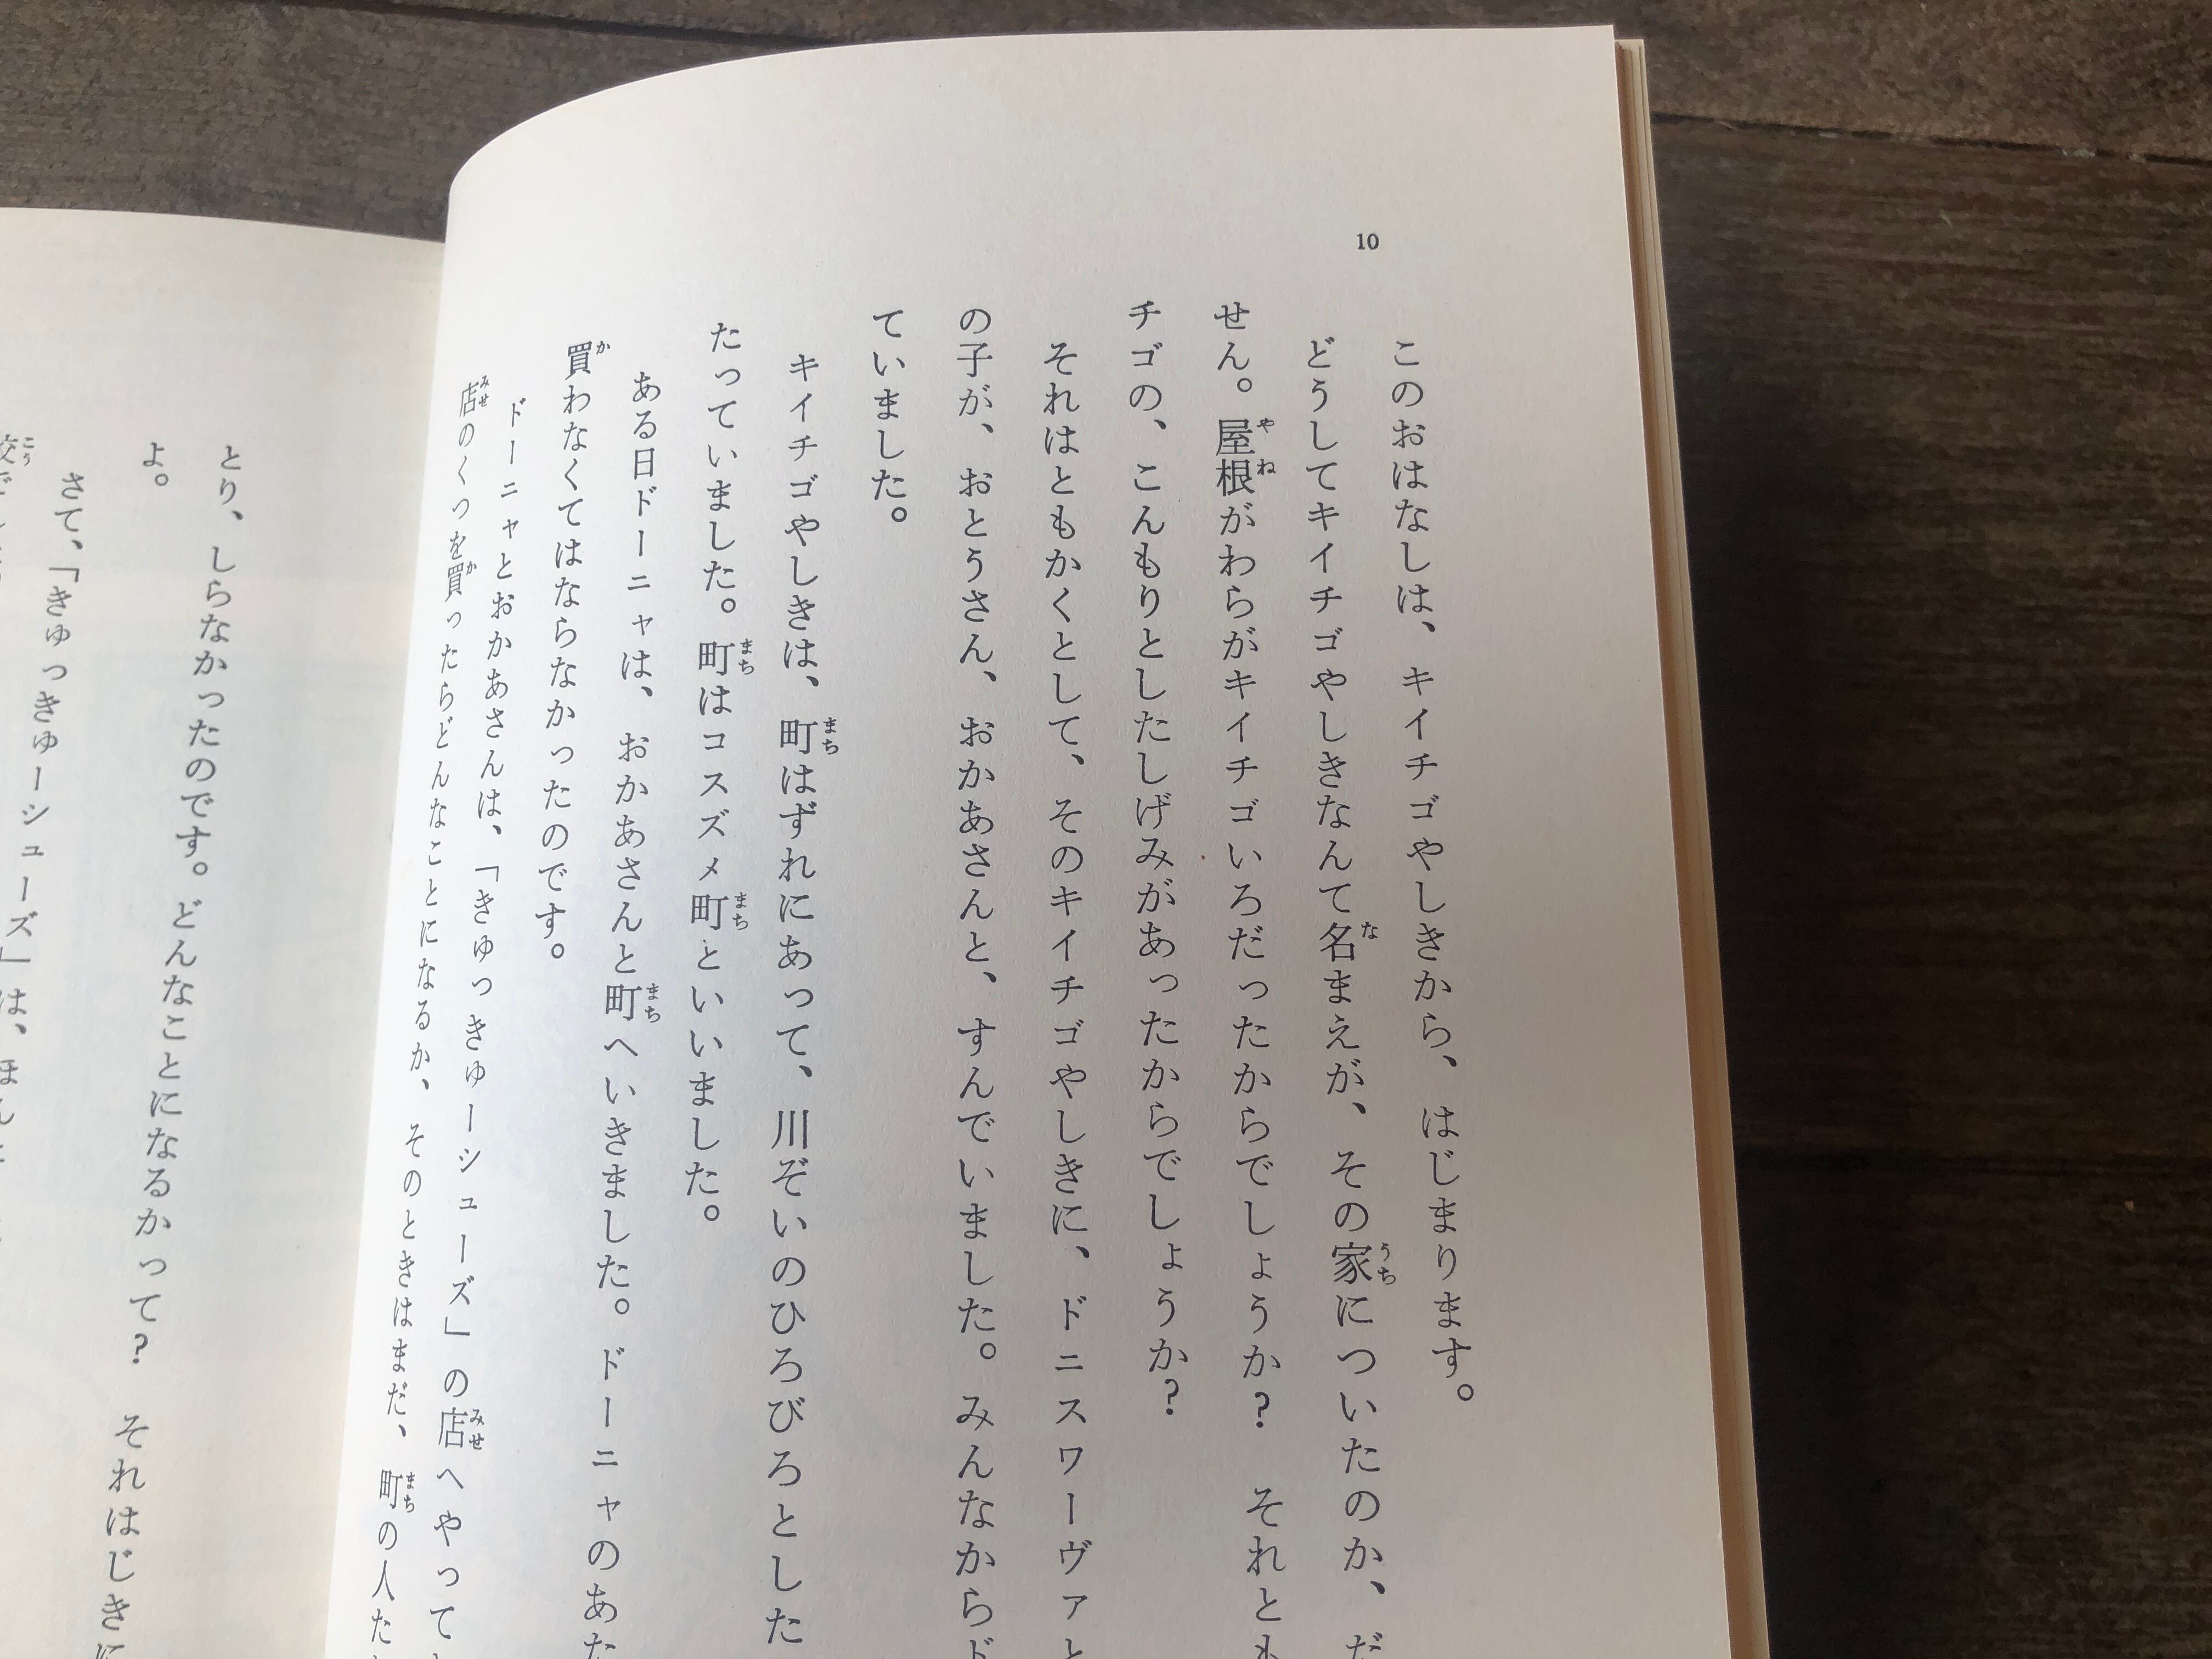 10
このおはなしは、キイチゴやしきから、はじまります。
どうしてキイチゴやしきなんて名まえが、その家についたのか、だ
せん。屋根がわらがキイチゴいろだったからでしょうか？　それとも
チゴの、こんもりとしたしげみがあったからでしょうか？
それはともかくとして、そのキイチゴやしきに、ドニスワーヴァと
の子が、おとうさん、おかあさんと、すんでいました。みんなからド
ていました。
キイチゴやしきは、町はずれにあって、川ぞいのひろびろとした
たっていました。町はコスズメ町といいました。
ある日ドーニャは、おかあさんと町へいきました。ドーニャのあた
買わなくてはならなかったのです。
ドーニャとおかあさんは、「きゅっきゅーシューズ」の店へやって
店のくつを買ったらどんなことになるか、そのときはまだ、町の人た
とり、しらなかったのです。どんなことになるかって？　それはじきに
よ。
さて、「きゅっきゅーシューズ」は、ほん